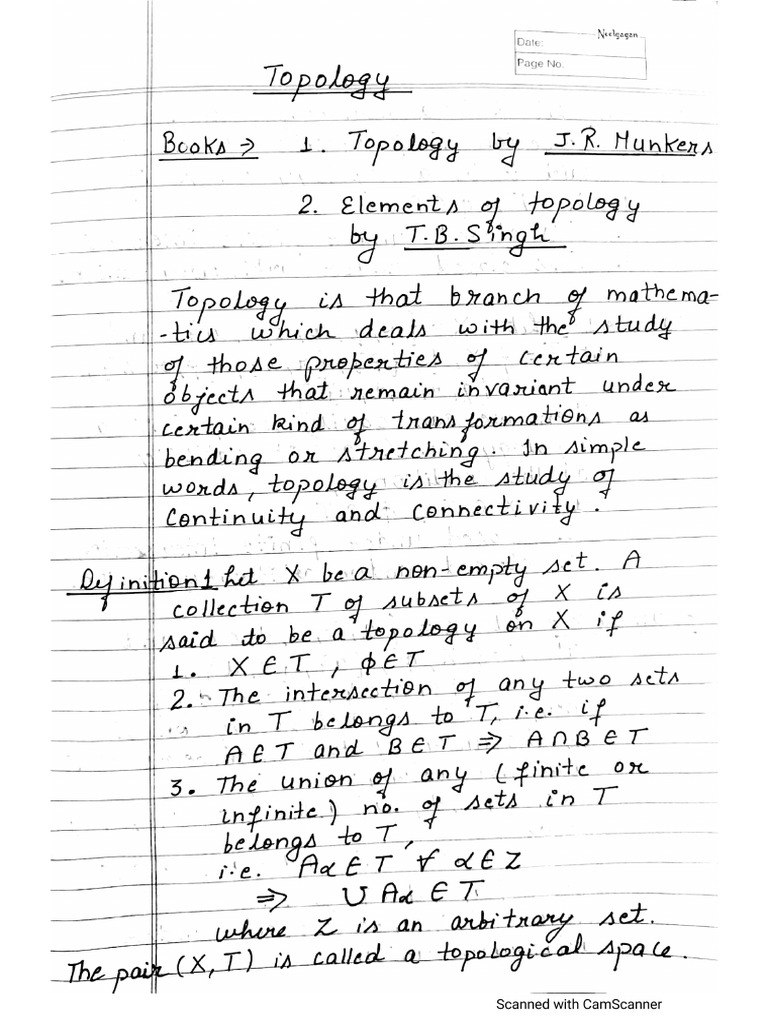 Neelgagan
Date:
Page No.
Topology
Books ⇒ 1. Topology by J.R. Munkers
2. Elements of topology
by T.B. Singh
Topology is that branch of mathema-
-tics which deals with the study
of those properties of certain
objects that remain invariant under
certain kind of transformations as
bending or stretching. In simple
words, topology is the study of
continuity and connectivity.
Definition 1 Let X be a non-empty set. A
collection T of subsets of X is
said to be a topology on X if
1. X ∈ T, ϕ ∈ T
2. The intersection of any two sets
in T belongs to T, i.e. if
A ∈ T and B ∈ T ⇒ A ∩ B ∈ T
3. The union of any (finite or
infinite) no. of sets in T
belongs to T,
i.e. Aα ∈ T ∀ α ∈ Z
⇒ ∪ Aα ∈ T.
where Z is an arbitrary set.
The pair (X, T) is called a topological space.
Scanned with CamScanner